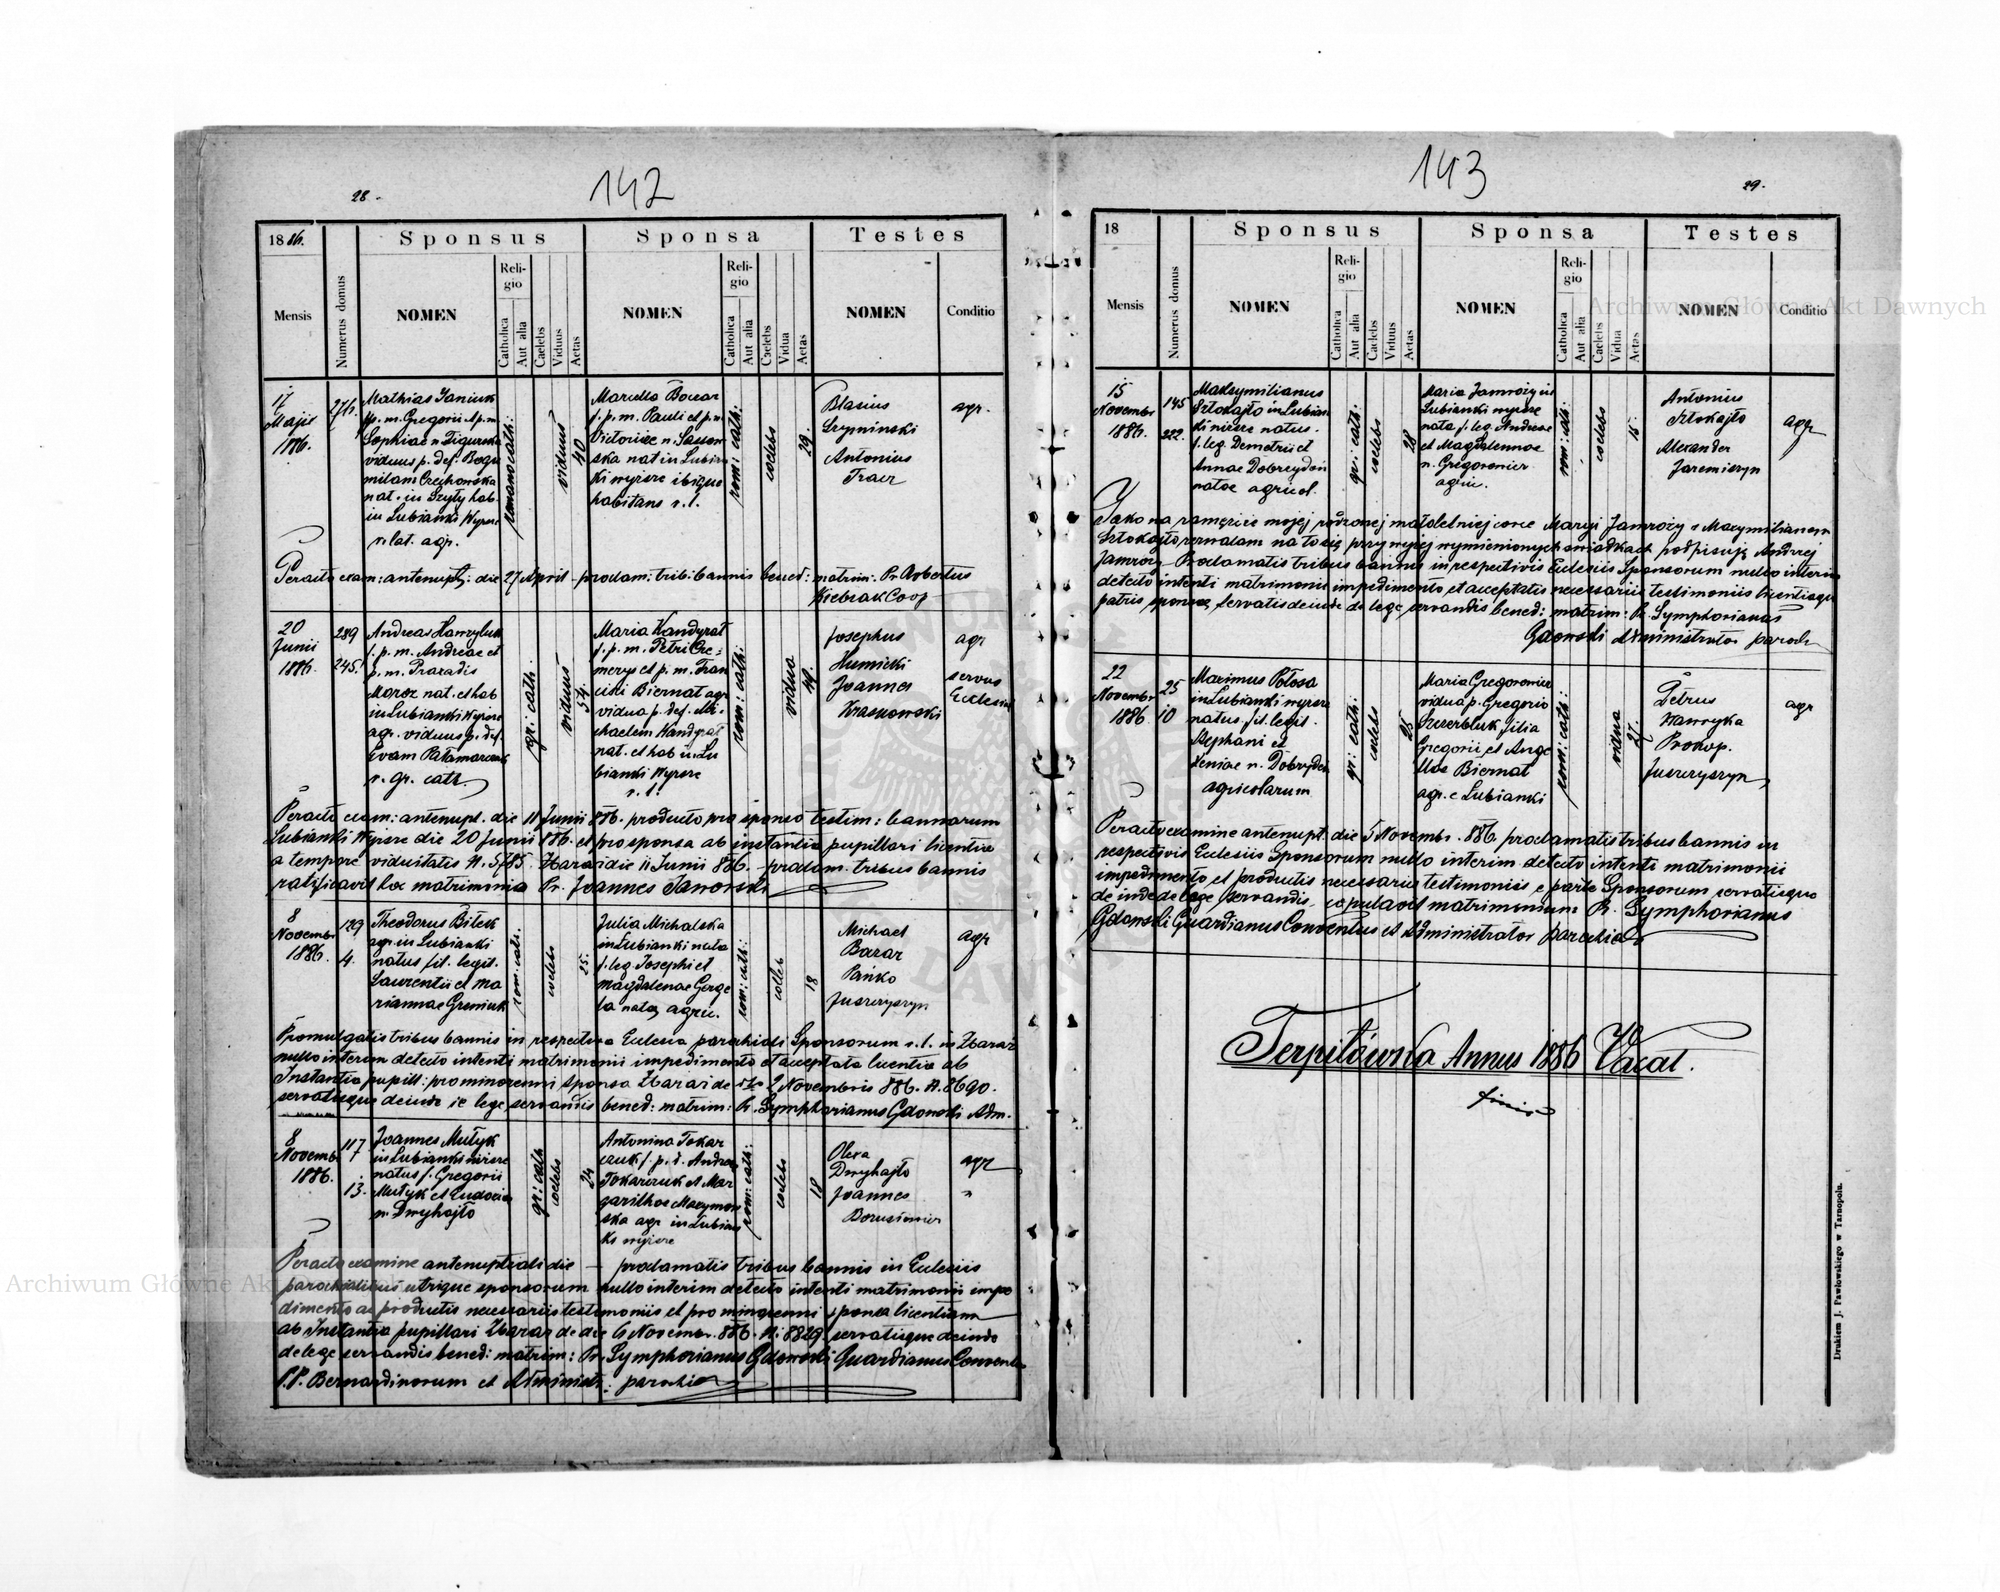 142
28.
1886.
Sponsus
Sponsa
Testes
Mensis
Numerus domus
NOMEN
Religio
Catholica
Aut alia
Caelebs
Viduus
Aetas
NOMEN
Religio
Catholica
Aut alia
Caelebs
Vidua
Aetas
NOMEN
Conditio
17
Maji
1886.
276.
Mathias Janiuk
f. p. m. Gregorii & p. m.
Sophiae n.
viduus p. def. Bogu
milam
nat. in hab.
in Lubianki Wyrsze
r. lat. agr.
romano cath:
viduus
40
Marcella Bocar
f. p. m. Pauli et p. m.
Victoriae n. Sasso
ska nat in Lubian
ki wyrsze ibique
habitans r. l.
rom: cath:
coelebs
29.
Blasius
Antonius
agr.
Peracto exam: antenupt: die 27 April - proclam: trib: bannis bened: matrim: Pr. Robertus
Kiebzak Coop
20
Junii
1886.
289
245.
Andreas Hawryluk
f. p. m. Andreae et
p. m. Paraxdis
Moroz nat. et hab
in Lubianki Wyrsze
agr. viduus p. def.
Evam
r. gr. cath.
gr: cath.
viduus
54.
Maria Kandyrat
f. p. m. Petri
et p. m. Fran
Biernat agr
vidua p. def. Mi
chaelem Kandyrat
nat. et hab in Lu
bianki Wyrsze
r. l.
rom: cath:
vidua
49.
Josephus
Humicki
Joannes
Kraskowski
agr
servus
Ecclesiae
Peracto exam: antenupt. die 11 Junii 886. producto pro sponso testim: bannorum
Lubianki Wyrsze die 20 Junii 886. et pro sponsa ab instantia pupillari licentia
a tempore viduitatis N. 5785. Zbaraz die 11 Junii 886. - proclam. tribus bannis
ratificavit hoc matrimonium Pr. Joannes Jaworski
8
Novembr
1886.
129
4.
Theodorus Bilek
agr. in Lubianki
natus fil. legit.
Laurentii et Ma
riannae
rom: cath.
coelebs
25.
Julia Michalska
in Lubianki nata
f. leg. Josephi et
Magdalenae Gerge
la nata, agric.
rom: cath:
coelebs
18
Michael
Bazar
Pańko
Juszczyszyn
agr
Promulgatis tribus bannis in respectiva Ecclesia parochiali Sponsorum r. l. in Zbaraz
nullo interim detecto intenti matrimonii impedimento et acceptata licentia ab
Instantia pupill: pro minorenni sponsa Zbaraz de dto 2 Novembris 886. N. 8690.
servatisque deinde de lege servandis bened: matrim: Pr. Symphorianus Gdowski Adm.
8
Novemb.
1886.
117
13.
Joannes Mutyk
in Lubianki nizsze
natus f. Gregorii
Mutyk et Eudociae
n. Dmyhajło
gr: cath
coelebs
24
Antonina Tokar
czuk f. p. d. Andreae
Tokarczuk et Mar
garithae Maxymow
ska agr. in Lubian
ki wyrsze
rom: cath:
coelebs
18
Olexa
Dmyhajło
Joannes
agr
"
Peracto examine antenuptiali die — proclamatis tribus bannis in Ecclesiis
parochialibus utrique sponsorum nullo interim detecto intenti matrimonii impe
dimento ac productis necessariis testimoniis et pro minorenni sponsa licentiam
ab Instantia pupillari Zbaraz de die 6 Novembr. 886. N: 8829. servatisque deinde
de lege servandis bened: matrim: Pr. Symphorianus Gdowski Guardianus Conventus
P.P. Bernardinorum et Administr: parochiae
143
29.
18
Sponsus
Sponsa
Testes
Mensis
Numerus domus
NOMEN
Religio
Catholica
Aut alia
Caelebs
Viduus
Aetas
NOMEN
Religio
Catholica
Aut alia
Caelebs
Vidua
Aetas
NOMEN
Conditio
15
Novembr
1886.
145
222.
Maksymilianus
Sztokajło in Lubian
ki nizsze natus.
f. leg. Demetrii et
Annae Dobrzydoń
natae agricol.
gr: cath:
coelebs
28
Maria Jamroży in
Lubianki wyrsze
nata f. leg. Andreae
et Magdalenae
n. Gregorowicz
agric.
rom: cath:
coelebs
15.
Antonius
Sztokajło
Alexander
Jaremiszyn
agr
Jako na zamęście mojej rodzonej małoletniej córce Maryi Jamroży z Maxymilianem
Sztokajło zezwalam na to się przy wyżej wymienionych świadkach podpisuję Andrzej
Jamroży. Proclamatis tribus bannis in respectivis Ecclesiis Sponsorum nullo interim
detecto intenti matrimonii impedimento, et acceptatis necessariis testimoniis licentiaque
patris sponsae, servatis deinde de lege servandis bened: matrim: Pr. Symphorianus
Gdowski Administrator paroch
22
Novembr
1886.
25
10
Maximus Połosa
in Lubianki wyrsze
natus. fil. legit.
Stephani et
Xeniae n. Dobrzydoń
agricolarum
gr: cath:
coelebs
25
Maria Gregorowicz
vidua p. Gregorio
Szczerbluk filia
Gregorii et Ange
llae Biernat
agr. e Lubianki
rom: cath:
vidua
27.
Petrus
Hawryka
Prokop.
Juszczyszyn
agr
Peracto examine antenupt. die 5 Novembr. 886. proclamatis tribus bannis in
respectivis Ecclesiis Sponsorum nullo interim detecto intenti matrimonii
impedimento, et productis necessariis testimoniis e parte Sponsorum servatisque
deinde de lege servandis, copulavit matrimonium: Pr. Symphorianus
Gdowski Guardianus Conventus et Administrator parochiae
Terpiłówka Annus 1886 Vacat.
finis
Drukiem J. Pawłowskiego w Tarnopolu.
Archiwum Główne Akt Dawnych
Archiwum Główne Akt